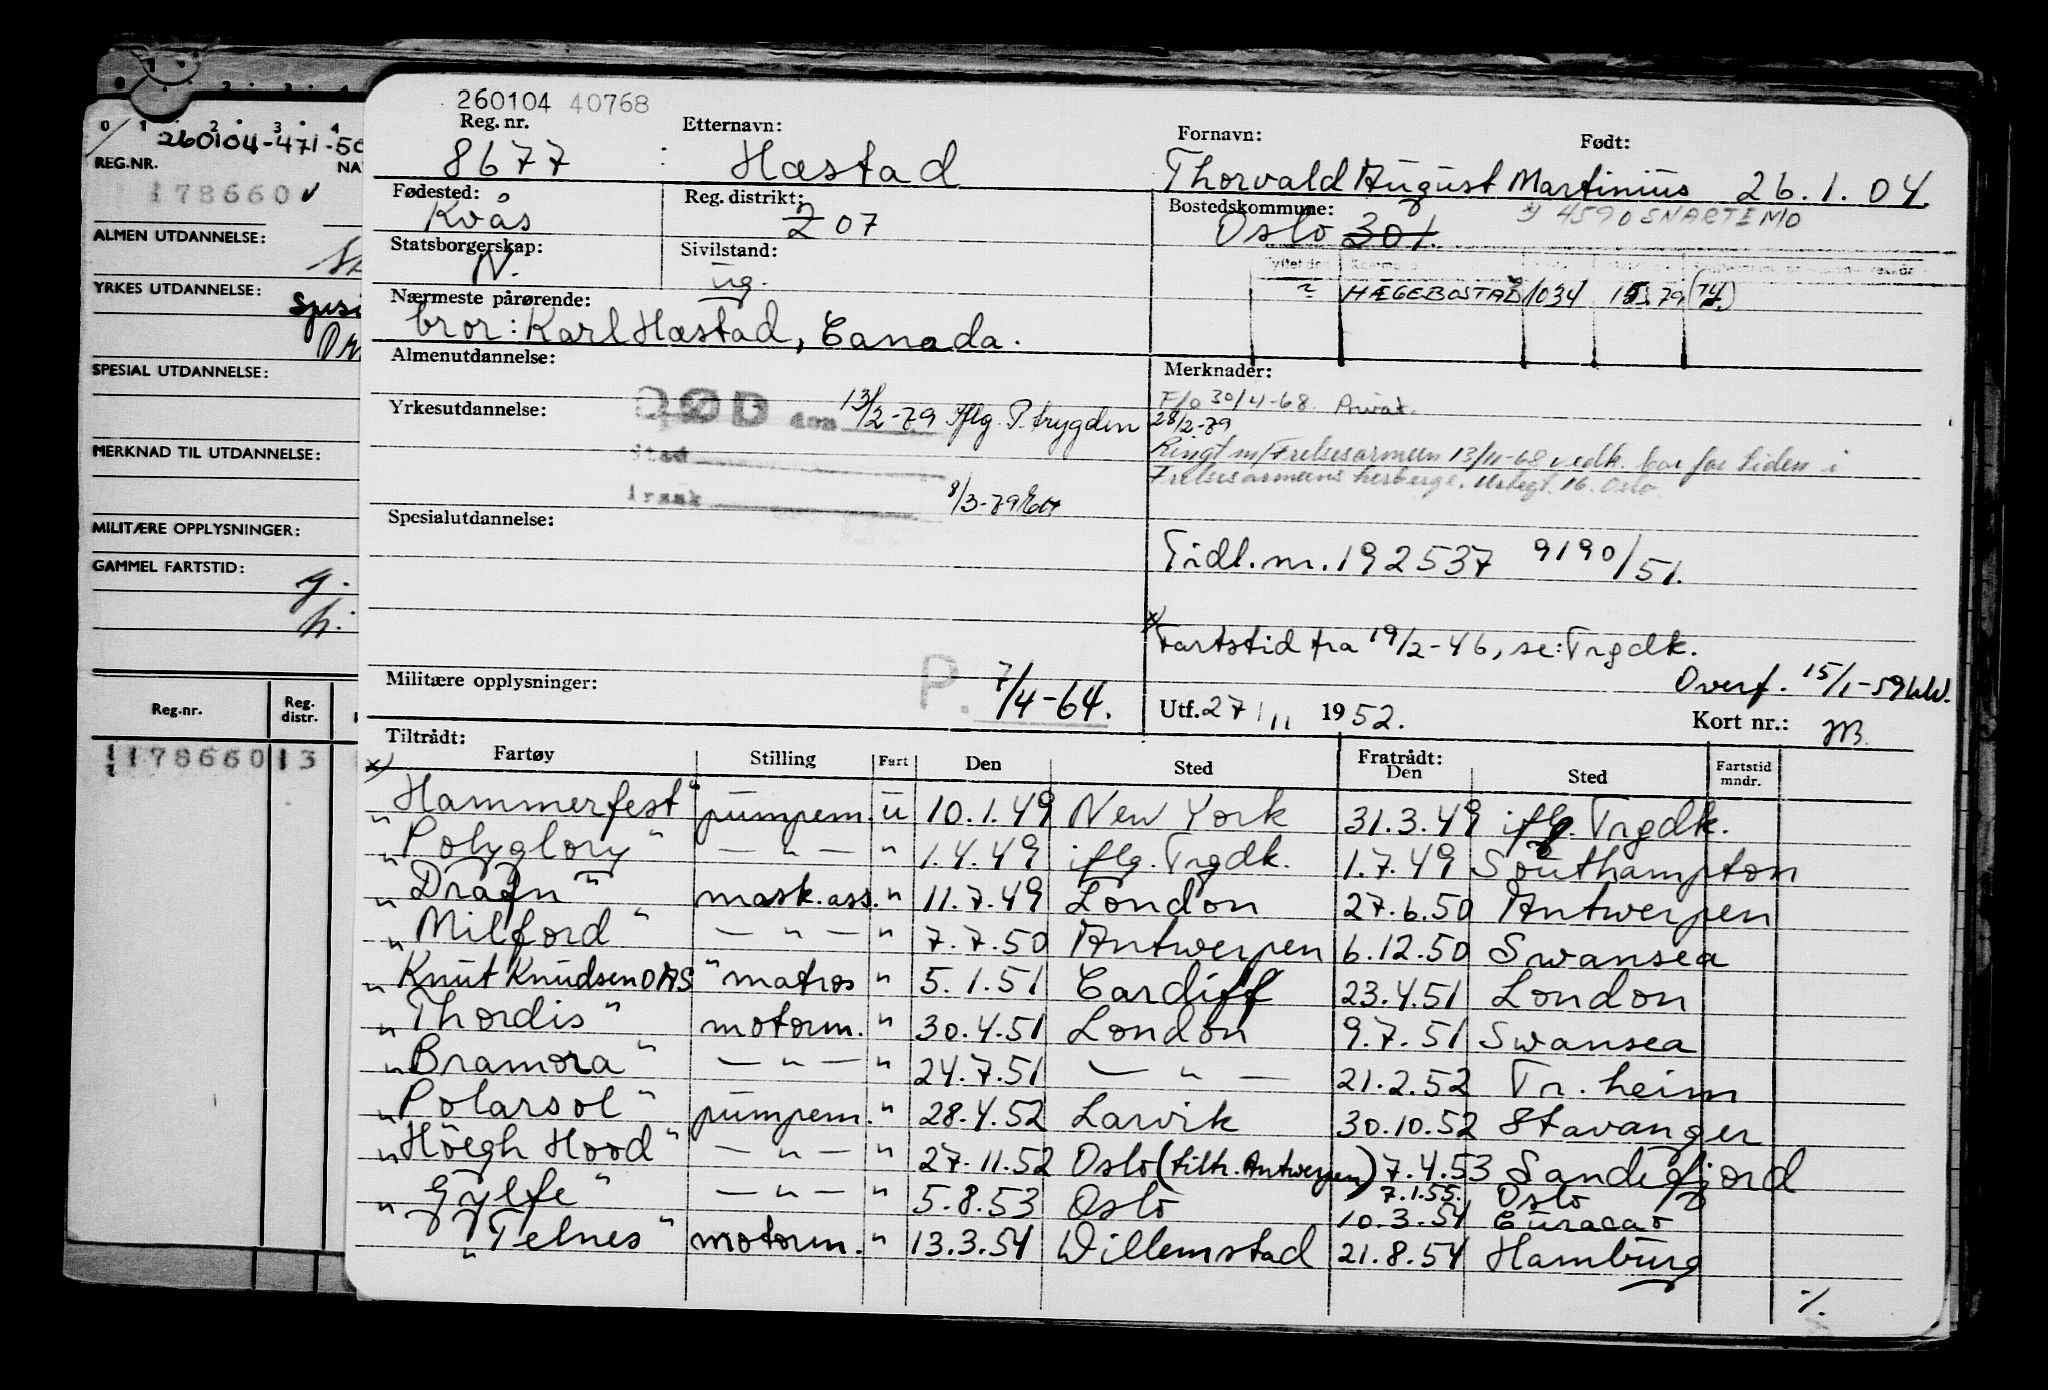 260104 40768
Reg. nr. Etternavn: Fornavn: Født:
8677 : Hæstad Thorvald August Martinius 26.1.04
Fødested: Reg. distrikt: Bostedskommune:
Kvås 207 Oslo 301. x) 4590 SNARTEMO
Statsborgerskap: Sivilstand:
N. ug.
? HÆGEBOSTAD 1034 15.3.79 (74)
Nærmeste pårørende:
bror: Karl Hæstad, Canada.
Almenutdannelse: Merknader:
F/o 30/4-68. Privat.
Yrkesutdannelse: DØD den 13/2-79 Iflg. P.trygden 28/2-79
Ringt m/Frelsesarmeen 13/11-68 vedk. bor for tiden i
sted
Frelsesarmeens herberge. 16. Oslo.
årsak 8/3-79
Spesialutdannelse:
Tidl. nr. 192537 9190/51.
x) Fartstid fra 19/2-46, se: Trgdk.
Overf. 15/1-59
Militære opplysninger: P. 7/4-64. Utf. 27/11 1952. Kort nr.:
Tiltrådt: Fratrådt:
Fartøy Stilling Fart Den Sted Den Sted Fartstid mndr.
x) "Hammerfest" pumpem. u 10.1.49 New York 31.3.49 iflg. Trgdk.
"Polyglory" — " — " 1.4.49 iflg. Trgdk. 1.7.49 Southampton
"Dragn" mask.ass. " 11.7.49 London 27.6.50 Antwerpen
"Milford" — " — " 7.7.50 Antwerpen 6.12.50 Swansea
"Knut Knudsen OAS" matros " 5.1.51 Cardiff 23.4.51 London
"Thordis" motorm. " 30.4.51 London 9.7.51 Swansea
"Bramora" — " — " 24.7.51 — " — 21.2.52 Tr.heim
"Polarsol" pumpem. " 28.4.52 Larvik 30.10.52 Stavanger
"Höegh Hood" — " — " 27.11.52 Oslo (tiltr. Antwerpen) 7.4.53 Sandefjord
7.1.55. Oslo
"Gylfe" — " — " 5.8.53 Oslo 10.3.54 Curacao
"Telnes" motorm. " 13.3.54 Willemstad 21.8.54 Hamburg
·/.
0 1 2 3 4
260104-471-50
REG.NR. NA
178660 ✓
ALMEN UTDANNELSE:
YRKES UTDANNELSE:
SPESIAL UTDANNELSE:
MERKNAD TIL UTDANNELSE:
MILITÆRE OPPLYSNINGER:
GAMMEL FARTSTID: g.
h.
Reg.nr. Reg. distr.
178660 13